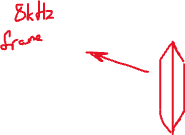 8kHz
frame